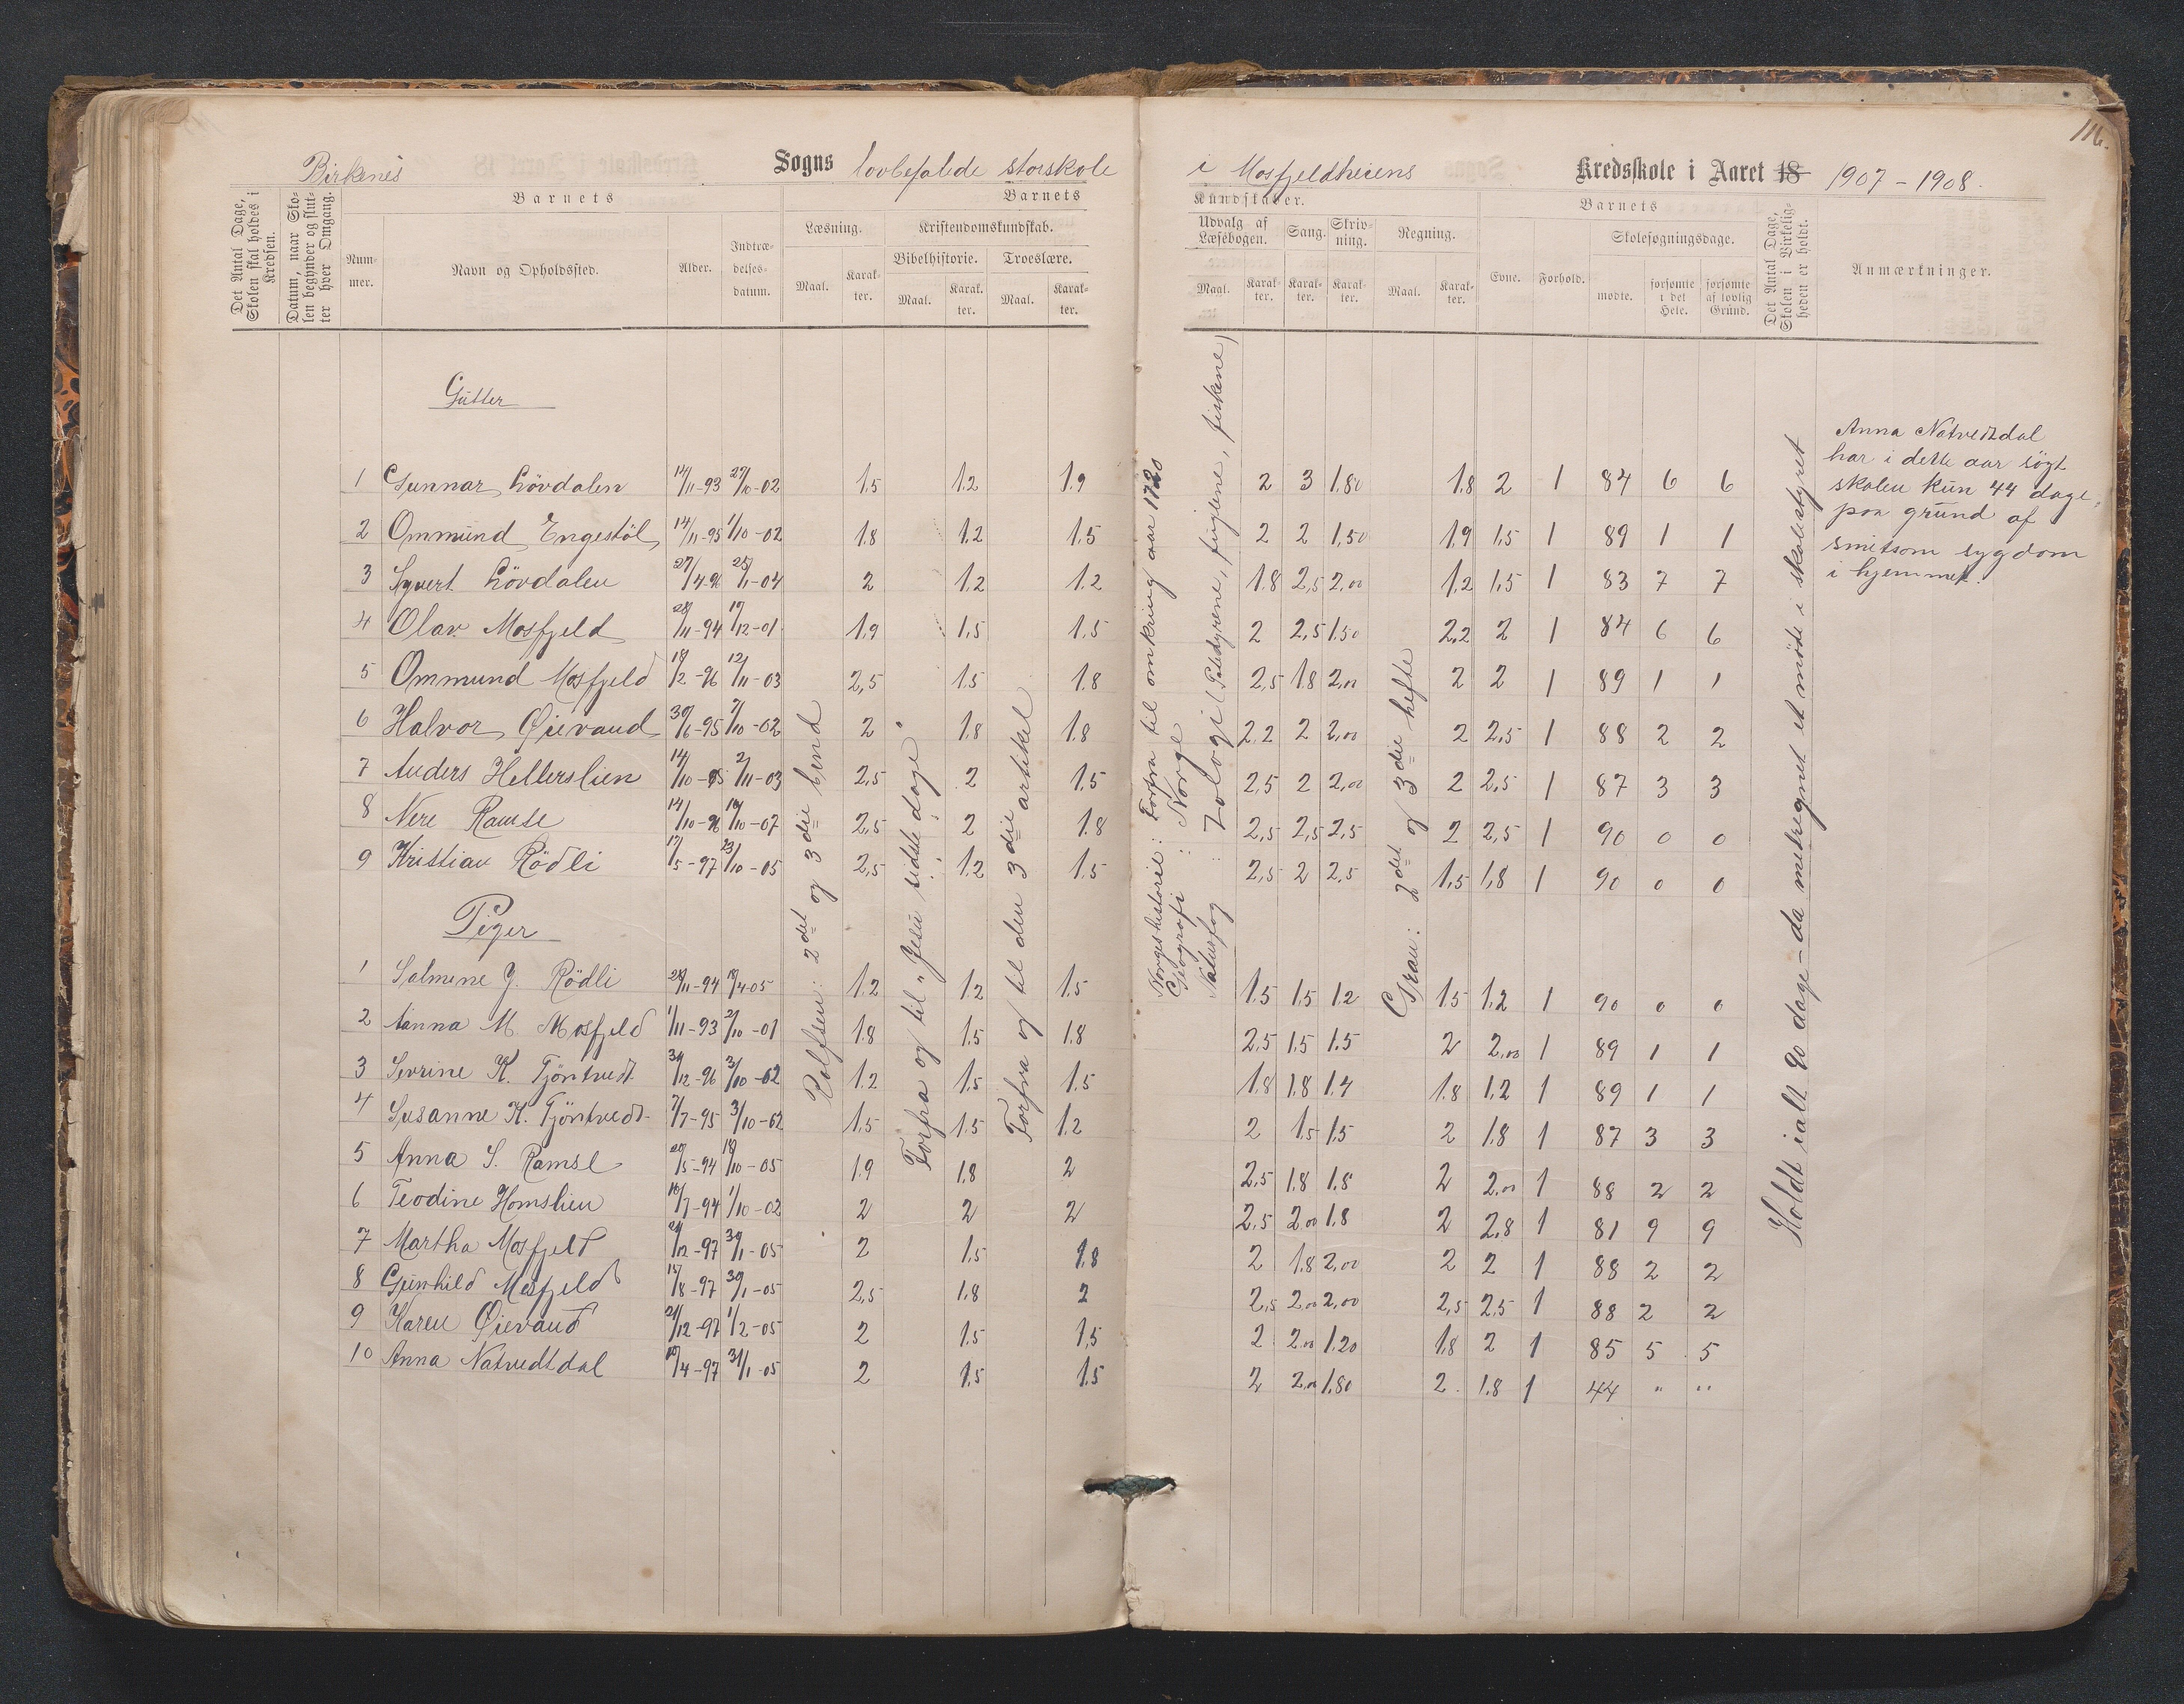 116.
Birkenes Sogns lovbefalede storskole i Mosfjeldheiens Kredsskole i Aaret 18 1907-1908.
Det Antal Dage, Skolen skal holdes i Kredsen.
Datum, naar Skolen begynder og slutter hver Omgang.
Barnets
Nummer.
Navn og Opholdssted.
Alder.
Indtrædelsesdatum.
Barnets
Læsning.
Maal.
Karakter.
Kristendomskundskab.
Bibelhistorie.
Maal.
Karakter.
Troeslære.
Maal.
Karakter.
Kundskaber.
Udvalg af Læsebogen.
Maal.
Karakter.
Sang.
Karakter.
Skrivning.
Karakter.
Regning.
Maal.
Karakter.
Barnets
Evne.
Forhold.
Skolesøgningsdage.
mødte.
forsømte i det Hele.
forsømte af lovlig Grund.
Det Antal Dage, Skolen i Virkeligheden er holdt.
Anmærkninger.
Gutter
1 Gunnar Lövdalen 14/11-93 27/10-02 1,5 1,2 1,9 2 3 1,80 1,8 2 1 84 6 6
2 Ommund Engestöl 14/11-95 1/10-02 1,8 1,2 1,5 2 2 1,50 1,9 1,5 1 89 1 1
3 Syvert Lövdalen 27/4-96 25/1-04 2 1,2 1,2 1,8 2,5 2,00 1,2 1,5 1 83 7 7
4 Olav Mosfjeld 28/11-94 17/12-01 1,9 1,5 1,5 2 2,5 1,50 2,2 2 1 84 6 6
5 Ommund Mosfjeld 18/2-96 12/11-03 2,5 1,5 1,8 2,5 1,8 2,00 2 2 1 89 1 1
6 Halvor Øievand 30/6-95 7/10-02 2 1,8 1,8 2,2 2 2,00 2 2,5 1 88 2 2
7 Anders Hellerslien 14/10-95 2/11-03 2,5 2 1,5 2,5 2 2,00 2 2,5 1 87 3 3
8 Nere Ramse 14/10-96 16/10-07 2,5 2 1,8 2,5 2,5 2,5 2 2,5 1 90 0 0
9 Kristian Rödli 17/5-97 23/10-05 2,5 1,2 1,5 2,5 2 2,5 1,5 1,8 1 90 0 0
Piger
1 Salmine J. Rödli 28/11-94 18/4-05 1,2 1,2 1,5 1,5 1,5 1,2 1,5 1,2 1 90 0 0
2 Aanna M. Mosfjeld 1/11-93 2/10-01 1,8 1,5 1,8 2,5 1,5 1,5 2 2,00 1 89 1 1
3 Severine K. Tjöntvedt 30/12-96 3/10-02 1,2 1,5 1,5 1,8 1,8 1,4 1,8 1,2 1 89 1 1
4 Susanne K. Tjöntvedt 7/7-95 3/10-02 1,5 1,5 1,2 2 1,5 1,5 2 1,8 1 87 3 3
5 Anna S. Ramse 20/5-94 18/10-05 1,9 1,8 2 2,5 1,8 1,8 2 2,00 1 88 2 2
6 Teodine Homslien 16/7-94 1/10-02 2 2 2 2,5 2,00 1,8 2 2,8 1 81 9 9
7 Martha Mosfjeld 21/12-97 30/1-05 2 1,5 1,8 2 1,8 2,00 2 2 1 88 2 2
8 Gunhild Mosfjeld 15/8-97 30/1-05 2,5 1,8 2 2,5 2,00 2,00 2,5 2,5 1 88 2 2
9 Karen Øievand 21/12-97 1/2-05 2 1,5 1,5 2 2,00 1,20 1,8 2 1 85 5 5
10 Anna Natvedtdal 10/4-97 31/1-05 2 1,5 1,5 2 2,00 1,80 2 1,8 1 44 " "
Rolfsen: 2det og 3die bind
Forfra og til "Jesu sidste dage"
Forfra og til den 3die artikel
Norgeshistorie: Forfra til omkring aar 1720
Geografi: Norge
Naturfag: Zologi (Patedyrene, fuglene, fiskene)
Grau: 2det og 3die hefte
Holdt ialt 90 dage - da medregnet et møde i skolestyret
Anna Natvedtdal
har i dette aar søgt
skolen kun 44 dage,
paa grund af
smitsom sygdom
i hjemmet.